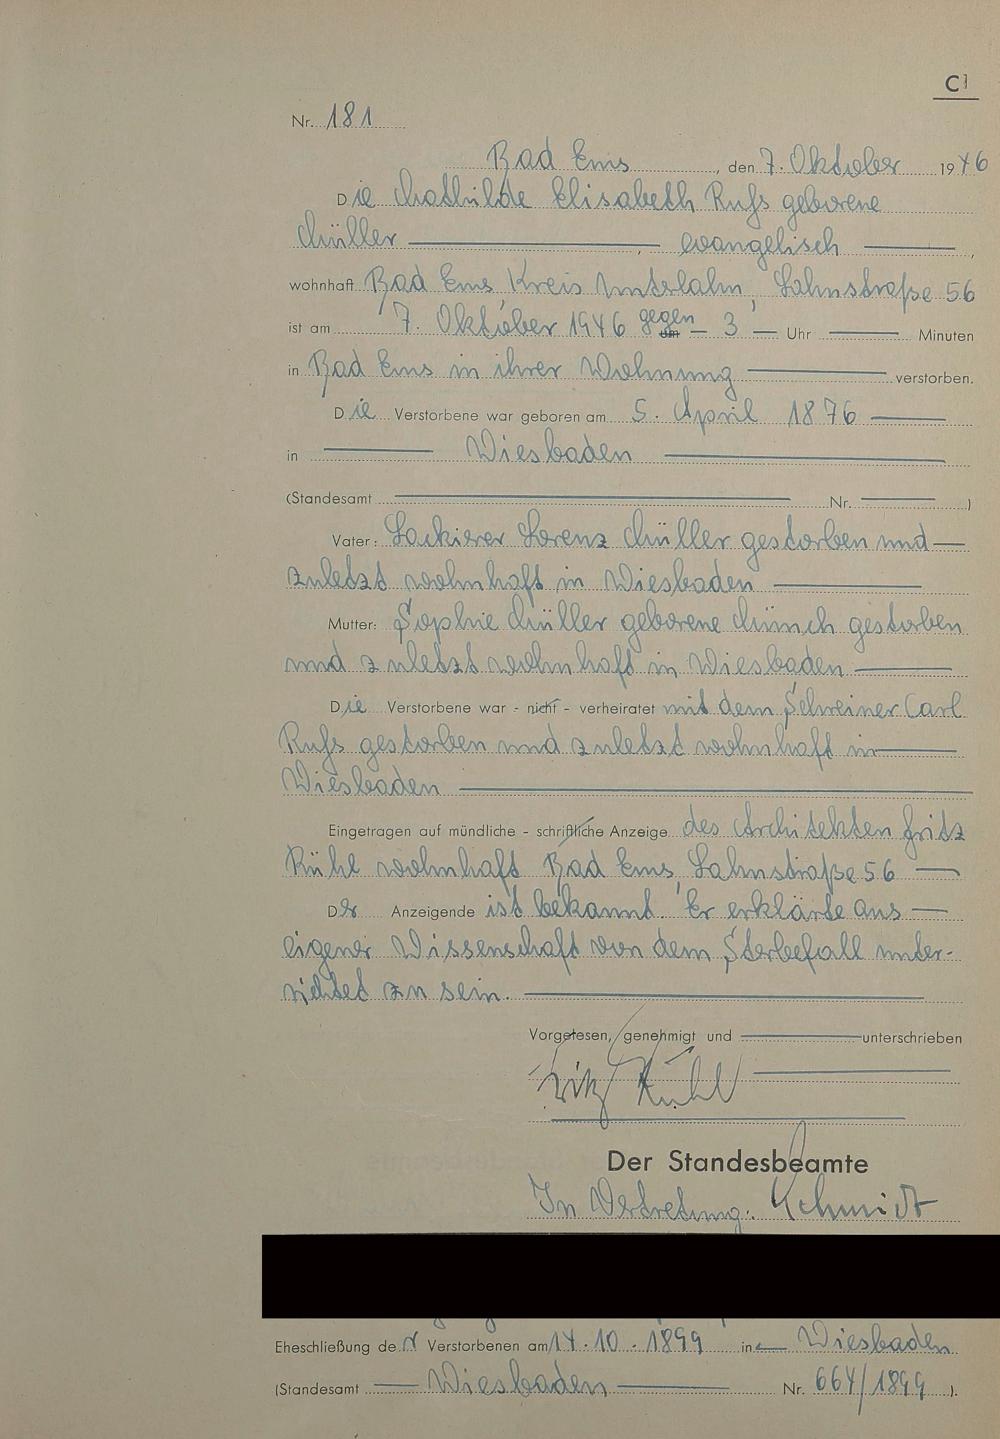 C1
Nr. 181
Bad Ems, den 7. Oktober 1946
Die Mathilde Elisabeth Rufs geborene
Müller, evangelisch,
wohnhaft Bad Ems Kreis Unterlahn, Lahnstraße 56
ist am 7. Oktober 1946 gegen um 3 Uhr Minuten
in Bad Ems in ihrer Wohnung verstorben.
Die Verstorbene war geboren am 5. April 1876
in Wiesbaden
(Standesamt Nr. )
Vater: Lackierer Lorenz Müller gestorben und
zuletzt wohnhaft in Wiesbaden
Mutter: Sophie Müller geborene Münch gestorben
und zuletzt wohnhaft in Wiesbaden
Die Verstorbene war - nicht - verheiratet mit dem Schreiner Carl
Rufs gestorben und zuletzt wohnhaft in
Wiesbaden
Eingetragen auf mündliche - schriftliche Anzeige des Architekten Fritz
Rühl wohnhaft Bad Ems, Lahnstraße 56
Der Anzeigende ist bekannt. Er erklärte aus
eigener Wissenschaft von dem Sterbefall unter-
richtet zu sein.
Vorgelesen, genehmigt und unterschrieben
Fritz Rühl
Der Standesbeamte
In Vertretung: Schmidt
Eheschließung der Verstorbenen am 14.10.1899 in Wiesbaden
(Standesamt Wiesbaden Nr. 664/1899).